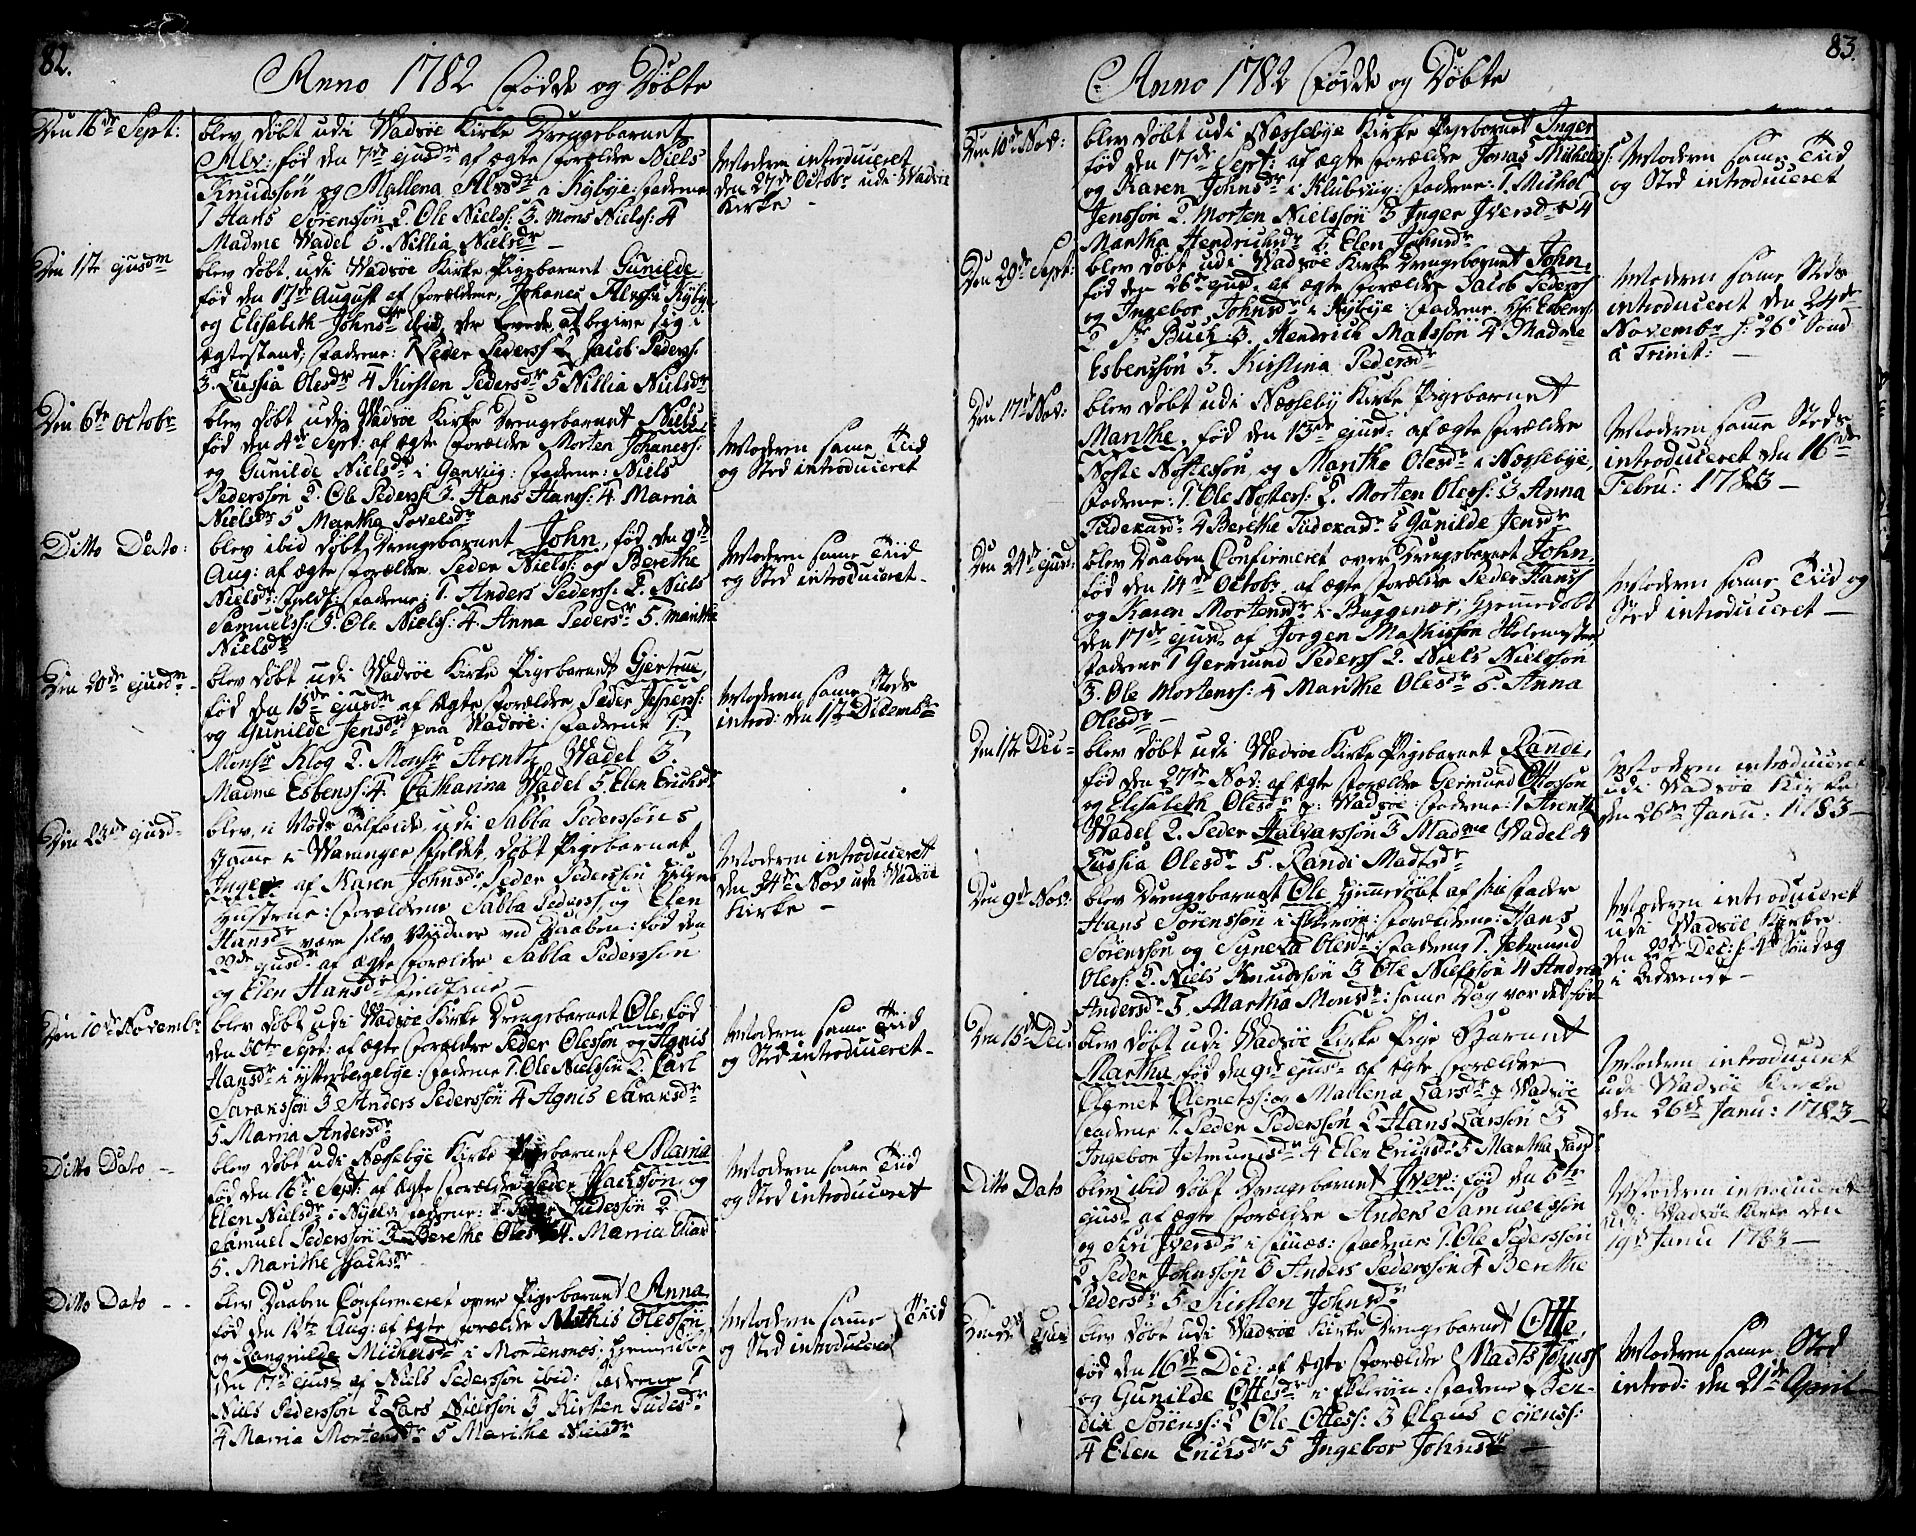 82.
Anno 1782 Fødde og Døbte
Den 16de Sept:
blev døbt udi Wadsøe Kirke Drengebarnet
Alv: fød den 7de ejusdm af ægte Forældre Niels
Knudssøn og Mallena Alvsdr i Kybye: Fadderne
1 Hans Sørensøn 2 Ole Nielss: 3. Mons Nielss: 4
Madme Wadel 5. Nillia Nielsdr
Moderen introduceret
den 27de Octobr udi Wadsøe
Kirke
Den ejusdm
blev døbt udi Wadsøe Kirke Pigebarnet Gunilde
fød den 17de August af Forældrene, Johanes Kybye
og Elisabeth Johnsdr ibid, der lovede at begive sig i
Ægtestand; Fadderne: 1 Peder Pederss 2 Jacob Pederss:
3. Lussia Olesdr 4 Kirsten Pedersdr 5 Nillia Nielsdr
Den 6te Octobr
blev døbt udi Wadsøe Kirke Drengebarnet Niels
fød den 4de Sept: af ægte Forældre Morten Johaness:
og Gunilde Nielsdr i Gandvig: Fadderne: Niels
Pederssøn 2. Ole Pederss: 3. Hans Hanss: 4. Marria
Nielsdr 5 Martha Povelsdr
Moderen same Tiid
og Sted introduceret
Ditto Dato:
blev ibid døbt Drengebarnet John, fød den 9de
Aug: af ægte Forældre Peder Nielss: og Berethe
Nielsdr: Fadderne: 1. Anders Pederss: 2. Niels
Samuelss: 3. Ole Nielss: 4. Anna Pedersdr 5. Marithe
Nielsdr
Moderen same Tiid
og Sted introduceret
Den 20de ejusdm
blev døbt udi Wadsøe Kirke Pigebarnet Giertrue,
fød den 15de ejusdm af Ægte Forældre Peder Jesperss:
og Gunilde Jensdr paa Wadsøe: Fadderne 1.
Monsr Klog 2. Monsr Arentz Wadel 3.
Madme Esbenss: 4. Catharina Wadel 5. Elen Ericksdr
Moderen same Steds
introd: den Decembr
Den 23de ejusd
blev, i Nøds Tilfælde, udi Sabba Pederssøns
Gamme i Waranger døbt Pigebarnet
Inger af Karen Johnsdr Peder Pederssøn
Hustrue: Forældrene Sabba Pederss, og Elen
Hansdr vare selv Vidner ved Daaben: fød den
22de ejusdr af ægte Forældre Sabba Pederssøn
og Elen Hansdr
Moderen introduceret
den 24de Nov udi Wadsøe
Kirke
Den 10de Novembr
blev døbt udi Wadsøe Kirke Drengebarnet Ole, fød
den 30te Sept: af ægte Forældre Peder Olessøn og Agnis
Hansdr i ytterbergebye: Fadderne 1. Ole Nielssøn 2. Carl
Sarakssøn 3 Anders Pederssøn 4 Agnis Saraksdr
5 Marria Andersdr
Moderen same Tiid
og Sted introduceret
Ditto Dato
blev døbt udi Næssebye Kirke Pigebarnet Marria
fød den 16de Sept: af ægte Forældre Peder Isackssøn, og
Elen Nielsdr i Nyelv Fadderne: 1. Peder Tudessøn 2
Samuel Pederssøn 3 Berethe Olesdr 4. Marria
5. Marithe Isachsdr
Moderen same Tiid
og Sted introduceret
Ditto Dato
blev Daaben Confirmeret over Pigebarnet Anna
fød den 12te Aug: af ægte Forældre Mathis Olessøn
og Rangnilde Michelsdr i Mortensnæs: Hjemmedøbt
den 17de ejusd af Niels Pederssøn ibid: Fadderne 1
Niels Pederssøn 2 Lars Nielssøn 3 Kirsten Tudesdr
4 Marria Mortensdr 5 Marithe Nielsdr
Moderen same Tiid
og Sted introduceret
83.
Anno 1782 Fødde og Døbte
Den 10de Nov:
blev døbt udi Næssebye Kirke Pigebarnet Inger
fød den 17de Sept: af ægte Forældre Jonas Michelss:
og Karen Johnsdr i Klubviig: Fadderne: 1. Michel
Jenssøn 2. Morten Nielssøn 3 Inger Iversdr 4
Martha Hendrichsdr 5. Elen Johnsdr
Moderen same Tiid
og Sted introduceret
Den 29de Sept:
blev døbt udi Wadsøe Kirke Drengebarnet John,
fød den 26de ejusd af ægte Forældre Jacob Pederss
og Ingebor Johnsdr i Kybye: Fadderne Esbenss:
2 Buck 3. Hendrich Matssøn 4 Madme
Esbenssøn 5. Kirstina Pedersdr
Moderen same Steds
introduceret den 24de
Novembr 26de Sønd
a Trinit:
Den 17de Nov:
blev døbt udi Næsseby Kirke Pigebarnet
Marithe, fød den 13de ejusd af ægte Forældre
Noste Nostessøn og Marithe Olesdr i Næssebye,
Fadderne: 1. Ole Nostess: 2. Morten Oless: 3 Anna
4 Berethe 5 Gunilde Jensdr
Moderen same Steds
introduceret den 16de
Febru: 1783
Den 24de ejusd:
blev Daaben Confirmeret over Drengebarnet John
fød den 14de Octobr af ægte Forældre Peder Hanss
og Karen Mortensdr i Buggenæs, Hjemmedøbt
den 17de ejusd af Jørgen Mathissøn
Fadderne 1 Germund Pederss 2. Niels Nielssøn
3. Ole Mortenss: 4 Marithe Olesdr 5. Anna
Olesdr
Moderen same Tiid og
Sted introduceret
Den Dec
blev døbt udi Wadsøe Kirke Pigebarnet Randi,
fød den 27de Nov: af ægte Forældre Germund Ottessøn
og Elisabeth Olesdr p: Wadsøe: Fadderne: 1 Arentz
Wadel 2. Peder Halvarssøn 3 Madme Wadel 4
Lussia Olesdr 5. Randi Madtsdr
Moderen introduceret
udi Wadsøe Kirke
den 26de Janu: 1783
Den 9de Nov:
blev Drengebarnet Ole Hjemmedøbt af sin Fader
Hans Sørenssøn i Ekkerøen: Forældrene: Hans
Sørenssøn og Synneva Olesdr: Fadderne 1. Jetmund
Oless: 2. Niels Knudssøn 3 Ole Nielssøn 4 Andrea
Andersdr 5. Martha Monsdr: same Dag var det fød
Moderen introduceret
udi Wadsøe Kirke
den 22de Dec: f: 4de Søndag
i Advent
Den 15de Dec:
blev døbt udi Wadsøe Kirke Pige Barnet
Martha, fød den 9de ejusd af ægte Forældre
Clemet Clemetss: og Mallena Larsdr p Wadsøe
Fadderne 1. Peder Pederssøn 2 Hans Larssøn 3
Ingebor Jetmundsdr 4 Elen Ericksdr 5 Martha Larsd
Moderen introduceret
udi Wadsøe Kirke
den 26de Janu: 1783
Ditto Dato
blev ibid døbt Drengebarnet Iver: fød den 6te
ejusd af ægte Forældre Anders Samuelssøn
og Siri Iversdr i Finæs: Fadderne 1. Ole Pederssøn
2 Peder Johnssøn 3 Anders Pederssøn 4 Berethe
Pedersdr 5 Kirsten Johnsdr
Moderen introduceret
udi Wadsøe Kirke den
19de Janu 1783
blev døbt udi Wadsøe Kirke Drengebarnet Otte,
fød den 16de Dec: af ægte Forældre Madts Johnss
og Gunilde Ottesdr i Ekkerøen: Fadderne Ben-
dix Sørenss: 2 Ole Ottess: 3 Claus Sørenss:
4 Elen Ericksdr 5 Ingebor Johnsdr
Moderen same Sted
introd: den 21de April